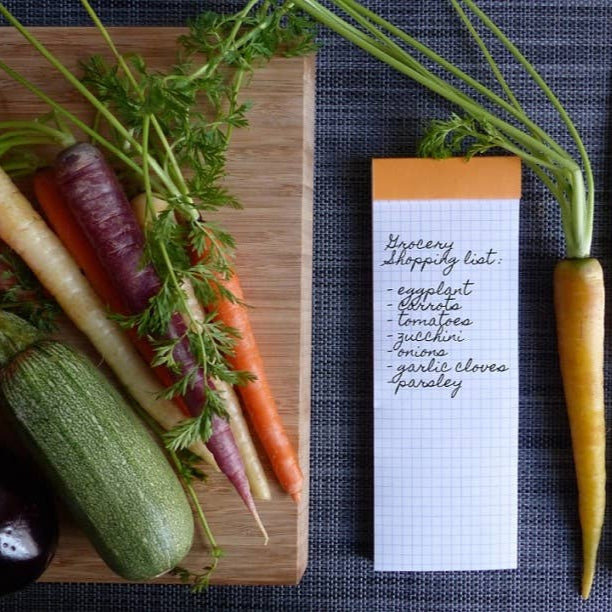 Grocery
Shopping list:
- eggplant
- carrots
tomatoes
- zucchini
- onions
- garlic cloves
- parsley